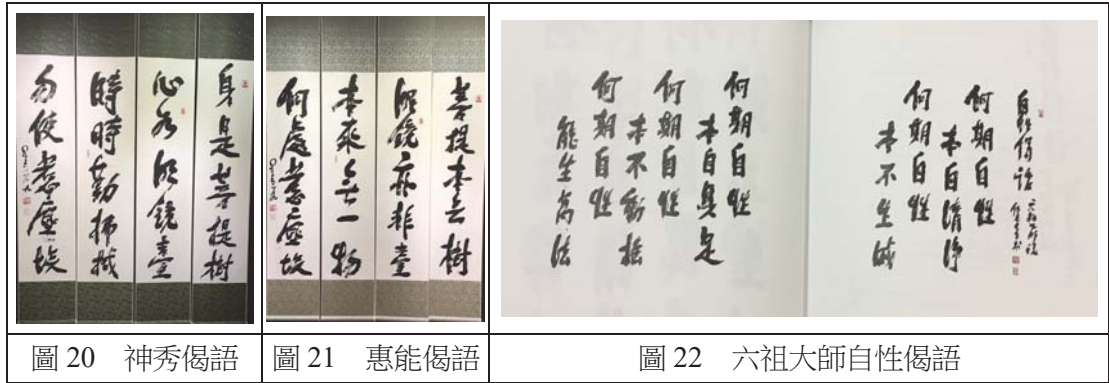 身是菩提樹
心如明鏡臺
時時勤拂拭
勿使惹塵埃
菩提本无樹
明鏡亦非臺
本來無一物
何處惹塵埃
自性偈語
何期自性
本自清淨
何期自性
本不生滅
何期自性
本自具足
何期自性
本不動搖
何期自性
能生萬法
圖 20 神秀偈語
圖 21 惠能偈語
圖 22 六祖大師自性偈語